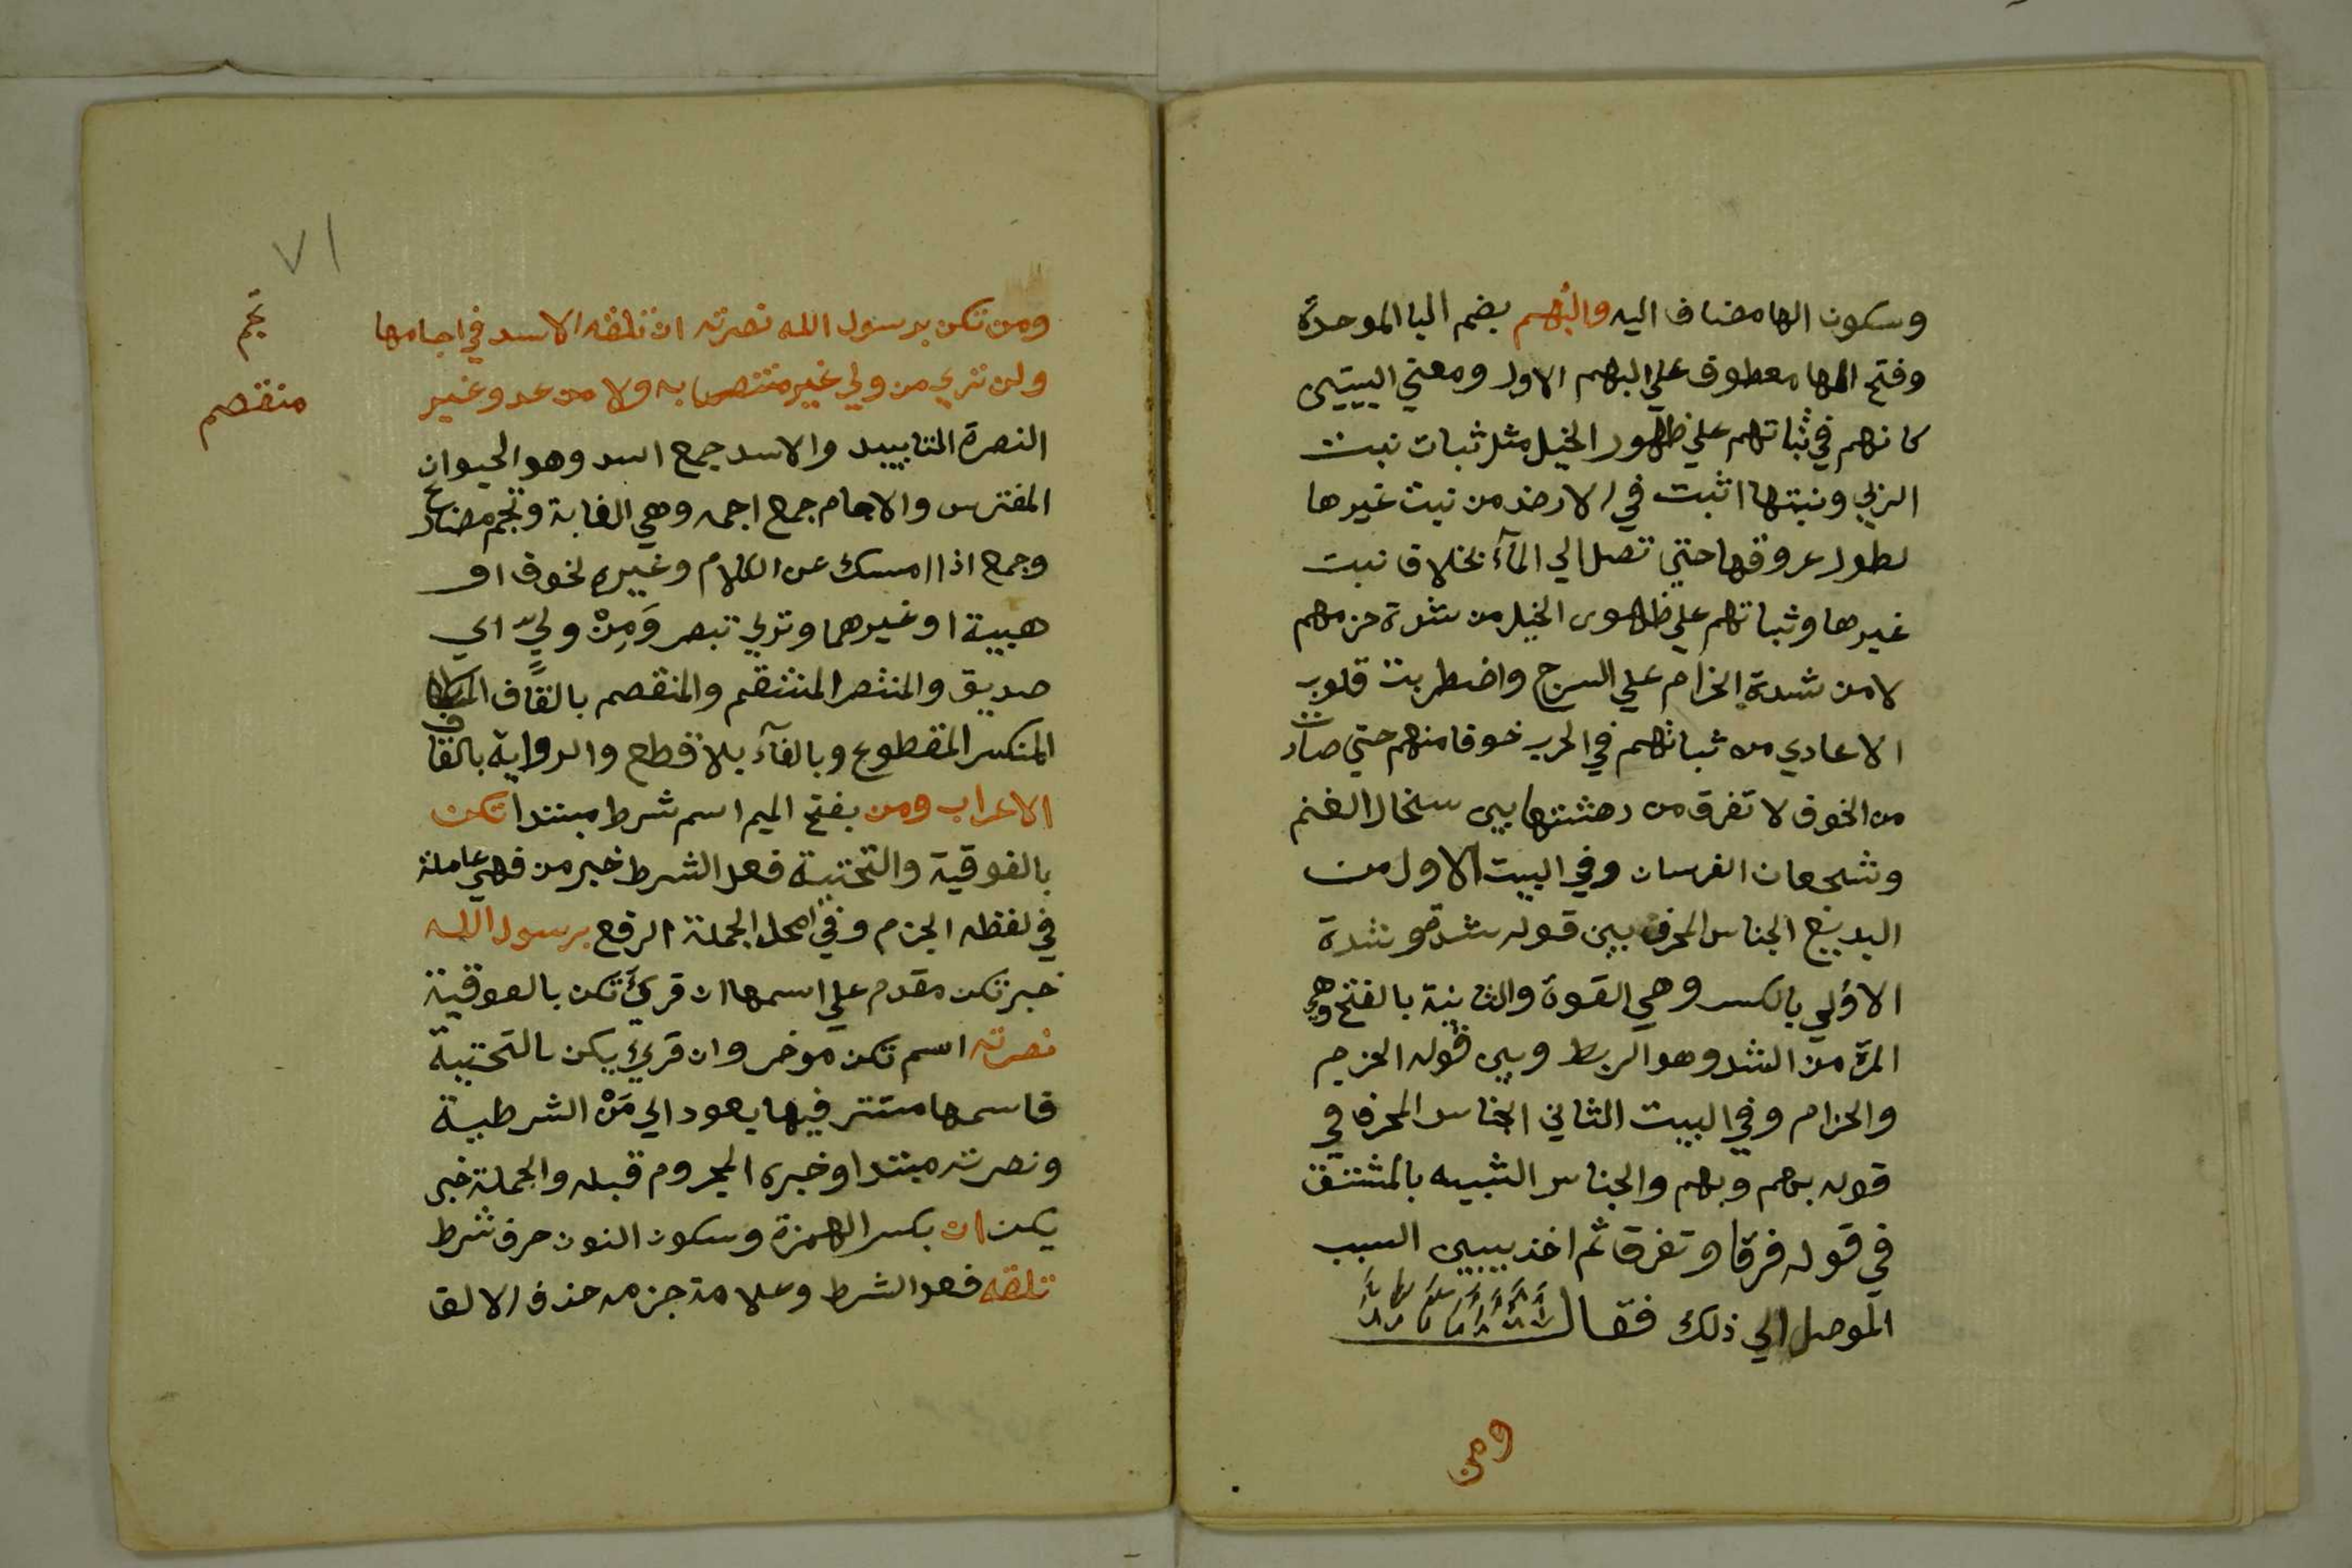 وسكون الها مضاف اليه والبُهم بضم البا الموحدة
وفتح الها معطوف علي البهم الاول ومعني البيتين
كانهم في ثباتهم علي ظهور الخيل مثل ثبات نبت
الربي ونبتها اثبت في الارض من نبت غيرها
لطول عروقها حتي تصل الي المآء بخلاف نبت
غيرها وثباتهم علي ظهور الخيل من شدة حزمهم
لا من شدة الحزام علي السرج واضطربت قلوب
الاعادي من ثباتهم في الحرب خوفا منهم حتي صارت
من الخوف لا تفرق من دهشتها بين سخال الغنم
وشجعان الفرسان وفي البيت الاول من
البديع الجناس المحرف بين قوله شدة وشدة
الاولي بالكسر وهي القوة والثانية بالفتح وهي
المرة من الشد وهو الربط وبين قوله الحزم
والحزام وفي البيت الثاني الجناس المحرف في
قوله بهم وبهم والجناس الشبيه بالمشتق
في قوله فرقا وتفرق ثم اخذ يبين السبب
الموصل الي ذلك فقال
ومن
٧١
ومن تكن برسول الله نصرته ان تلقه الاسد في اجامها
تجم
ولن تري من ولي غير منتصر به ولا من عدو غير
منقصم
النصرة التاييد والاسد جمع اسد وهو الحيوان
المفترس والاجام جمع اجمه وهي الغابة وتجم مضارع
وجم اذا امسك عن الكلام وغيره لخوف او
هيبة او غيرهما وتري تبصر وَمِنْ وليٍّ اي
صديق والمنتصر المنتقم والمنقصم بالقاف
المنكسر المقطوع وبالفآء بلا قطع والرواية بالقاف
الاعراب ومن بفتح الميم اسم شرط مبتدا تكن
بالفوقية والتحتية فعل الشرط خبر من فهي عاملة
في لفظه الجزم وفي محل الجملة الرفع برسول الله
خبر تكن مقدم علي اسمها ان قرئ تكن بالفوقية
نصرته اسم تكن موخر وان قرئ يكن بالتحتية
فاسمها مستتر فيها يعود الي مَنْ الشرطية
ونصرته مبتدا وخبره المجروم قبله والجملة خبر
يكن ان بكسر الهمزة وسكون النون حرف شرط
تلقه فعل الشرط وعلامة جزمه حذف الالف